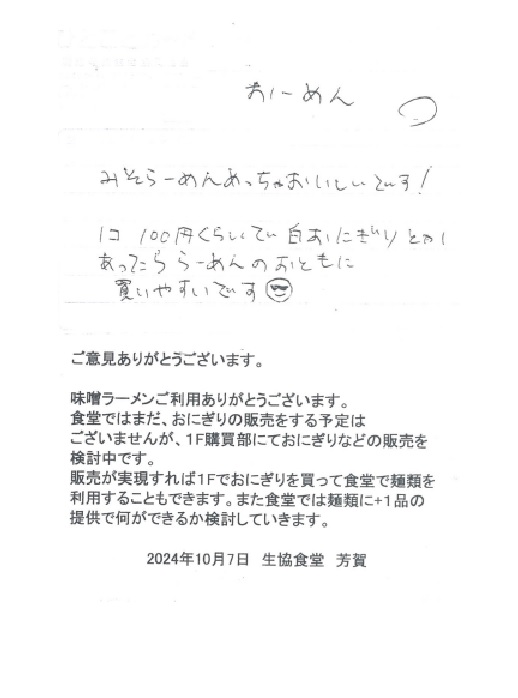 おーめん
みそらーめんめっちゃおいしいです!
1コ 100円くらいでい 白おにぎりとか
あったららーめんのおともに
買いやすいです
ご意見ありがとうございます。
味噌ラーメンご利用ありがとうございます。
食堂ではまだ、おにぎりの販売をする予定は
ございませんが、1F購買部にておにぎりなどの販売を
検討中です。
販売が実現すれば1Fでおにぎりを買って食堂で麺類を
利用することもできます。また食堂では麺類に+1品の
提供で何ができるか検討していきます。
2024年10月7日 生協食堂 芳賀